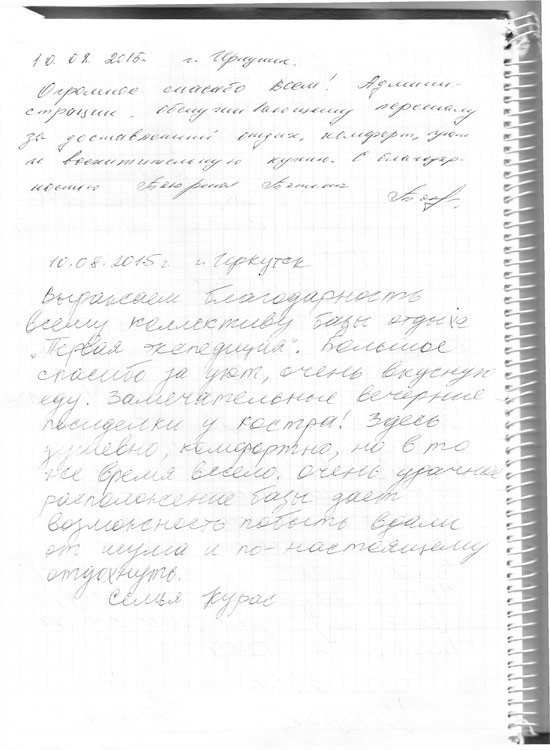 10.08.2015г. г. Иркутск.
Огромное спасибо всем! Админи-
страции, обслуживающему персоналу
за доставленный отдых, комфорт, уют
и восхитительную кухню. С благодар-
ностью
10.08.2015г г. Иркутск
Выражаем благодарность
всему коллективу базы отдыха
"Первая экспедиция". Большое
спасибо за уют, очень вкусную
еду. Замечательные вечерние
посиделки у костра! Здесь
душевно, комфортно, но в то
же время весело. Очень удачное
расположение базы дает
возможность побыть вдали
от шума и по-настоящему
отдохнуть.
Семья Курас